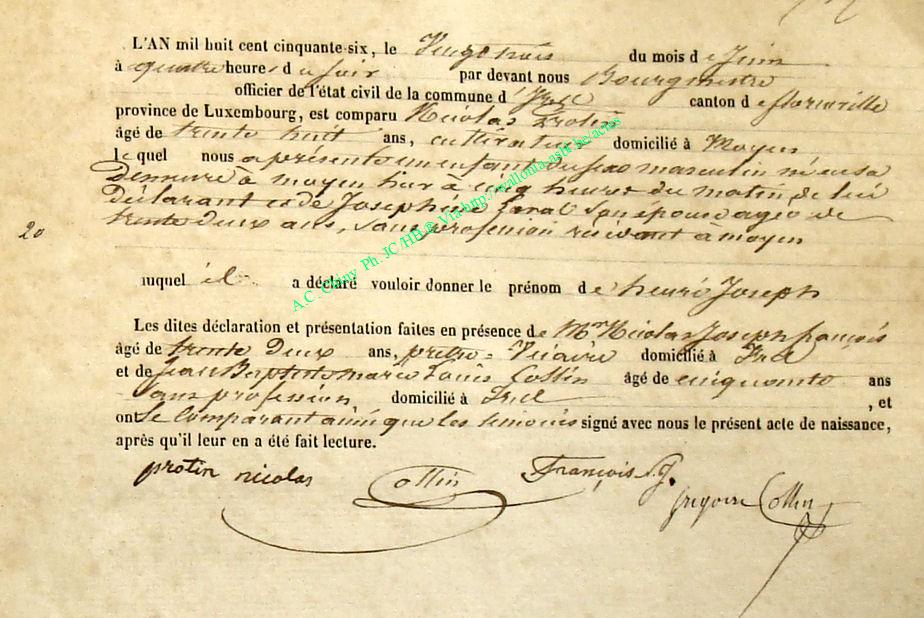 L'AN mil huit cent cinquante-six, le Vingt trois du mois de Juin
à quatre heures du soir par devant nous Bourgmestre
officier de l'état civil de la commune d'Izel canton de florenville
province de Luxembourg, est comparu Nicolas Protin
âgé de trente huit ans, cultivateur domicilié à Moyen
lequel nous a présenté un enfant du sexe masculin né en sa
Demeure à moyen hier à cinq heures du matin de lui
Déclarant et de Joséphine son épouse agée de
trente Deux ans, Sans profession résidant à moyen
20
auquel il a déclaré vouloir donner le prénom de henri Joseph
Les dites déclaration et présentation faites en présence de Mr Nicolas Joseph françois
âgé de trente Deux ans, prêtre-Vicaire domicilié à Izel
et de Jean Baptiste marie Louis Collin âgé de cinquante ans
Sans profession domicilié à Izel , et
ont Le Comparant ainsi que les témoins signé avec nous le présent acte de naissance,
après qu'il leur en a été fait lecture.
protin nicolas Collin François N.J.
Grégoire Collin
A.C. Chiny Ph. JC/HH © Via http://wallonia-asbl.be/actes